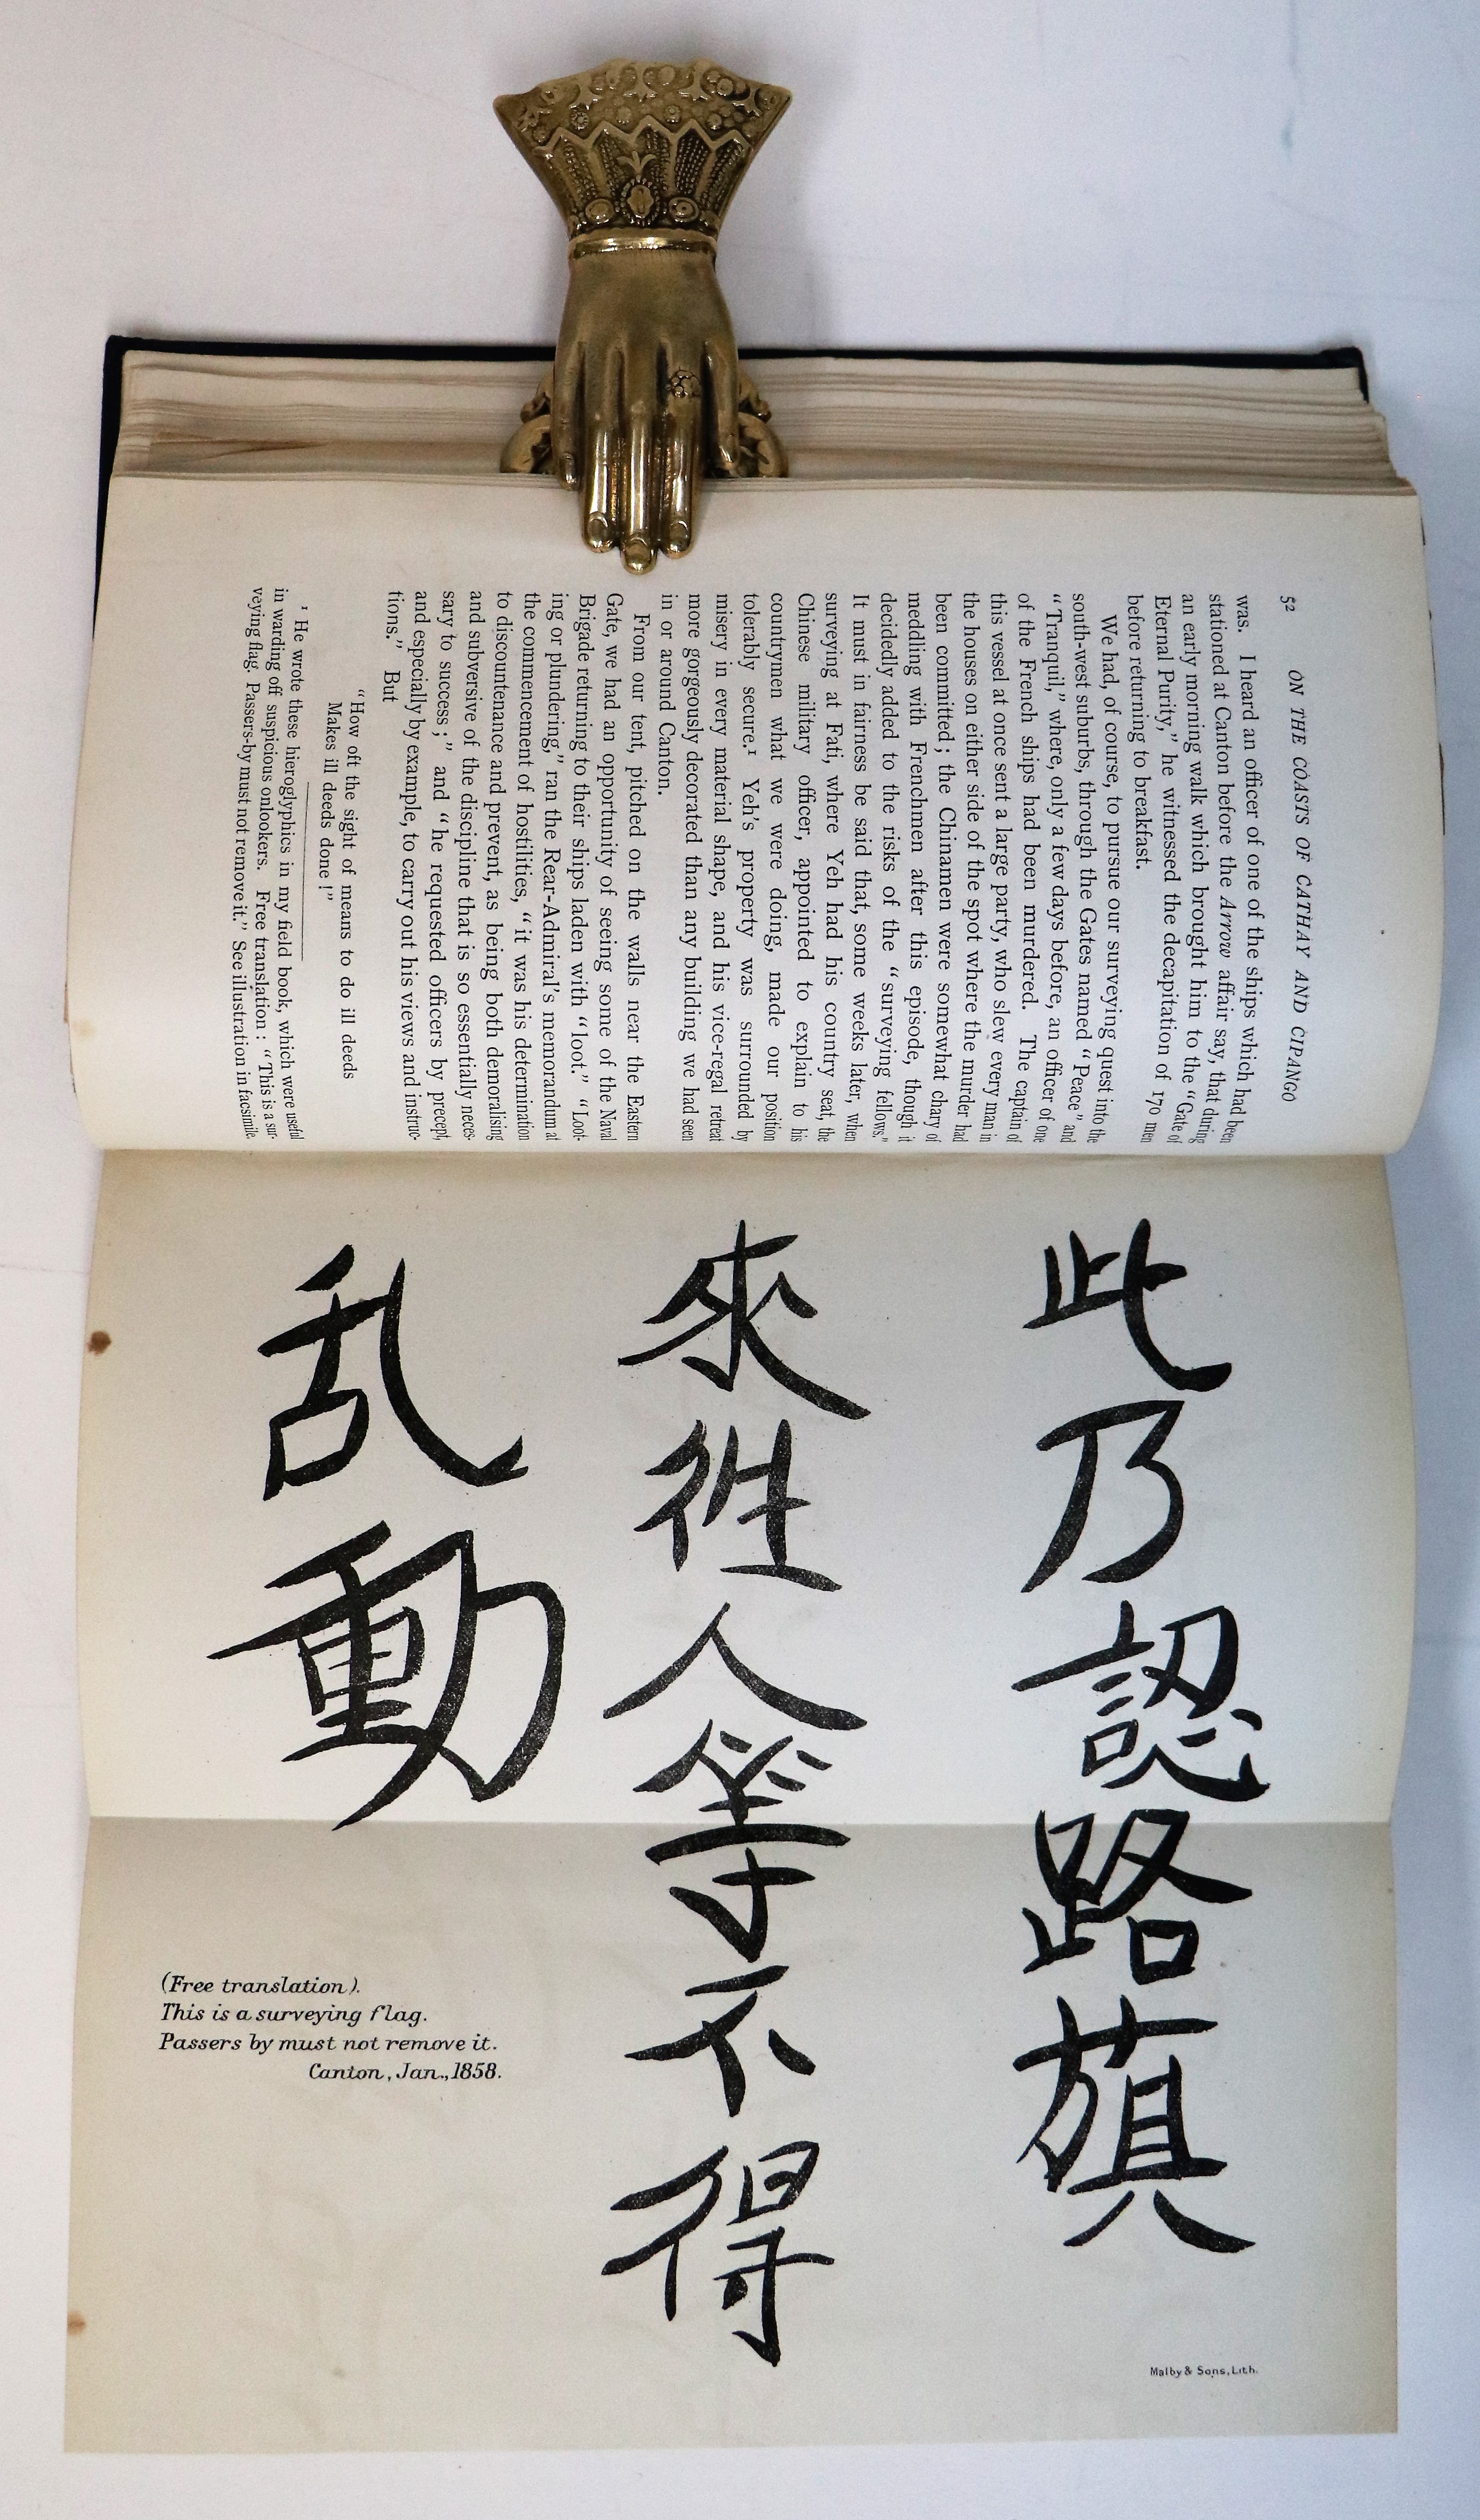 52 ON THE COASTS OF CATHAY AND CIPANGO
was. I heard an officer of one of the ships which had been
stationed at Canton before the Arrow affair say, that during
an early morning walk which brought him to the “Gate of
Eternal Purity,” he witnessed the decapitation of 170 men
before returning to breakfast.
We had, of course, to pursue our surveying quest into the
south-west suburbs, through the Gates named “Peace” and
“Tranquil,” where, only a few days before, an officer of one
of the French ships had been murdered. The captain of
this vessel at once sent a large party, who slew every man in
the houses on either side of the spot where the murder had
been committed; the Chinamen were somewhat chary of
meddling with Frenchmen after this episode, though it
decidedly added to the risks of the “surveying fellows.”
It must in fairness be said that, some weeks later, when
surveying at Fati, where Yeh had his country seat, the
Chinese military officer, appointed to explain to his
countrymen what we were doing, made our position
tolerably secure.¹ Yeh's property was surrounded by
misery in every material shape, and his vice-regal retreat
more gorgeously decorated than any building we had seen
in or around Canton.
From our tent, pitched on the walls near the Eastern
Gate, we had an opportunity of seeing some of the Naval
Brigade returning to their ships laden with “loot.” “Loot-
ing or plundering,” ran the Rear-Admiral's memorandum at
the commencement of hostilities, “it was his determination
to discountenance and prevent, as being both demoralising
and subversive of the discipline that is so essentially neces-
sary to success;” and “he requested officers by precept,
and especially by example, to carry out his views and instruc-
tions.” But
“How oft the sight of means to do ill deeds
Makes ill deeds done!”
¹ He wrote these hieroglyphics in my field book, which were useful
in warding off suspicious onlookers. Free translation: “This is a sur-
veying flag. Passers-by must not remove it.” See illustration in facsimile.
此乃認路旗
來徃人等不得
乱動
(Free translation).
This is a surveying flag.
Passers by must not remove it.
Canton, Jan., 1858.
Malby & Sons, Lith.